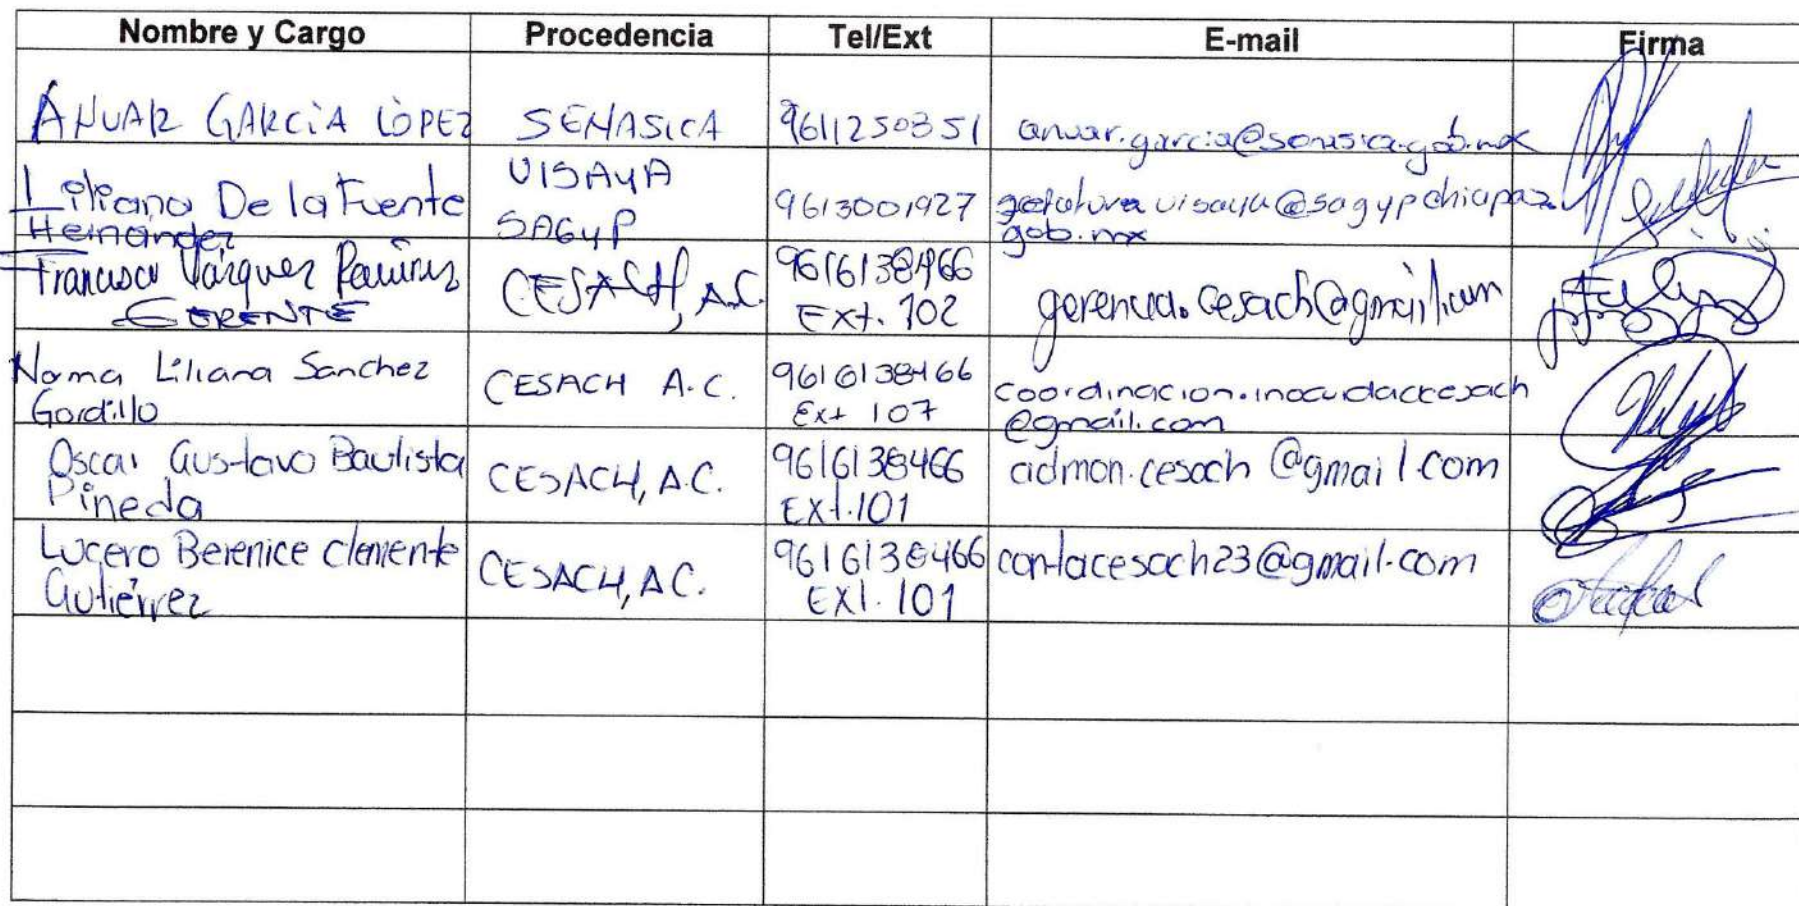 Nombre y Cargo Procedencia Tel/Ext E-mail Firma
ANUAR GARCÍA LÓPEZ SENASICA 9611250351 anuar.garcia@senasica.gob.mx
Liliana De la Fuente Hernandez VISAYA SAGYP 9613001927 gefatura.visaya@sagypchiapas.gob.mx
Francisco Vázquez Ramírez GERENTE CESACH, A.C. 9616138466 Ext. 102 gerencia.cesach@gmail.com
Norma Liliana Sanchez Gordillo CESACH A.C. 9616138466 Ext 107 coordinacion.inocuidadcesach@gmail.com
Oscar Gustavo Bautista Pineda CESACH, A.C. 9616138466 Ext.101 admon.cesach@gmail.com
Lucero Berenice Clemente Gutiérrez CESACH, A.C. 9616138466 Ext.101 contacesach23@gmail.com